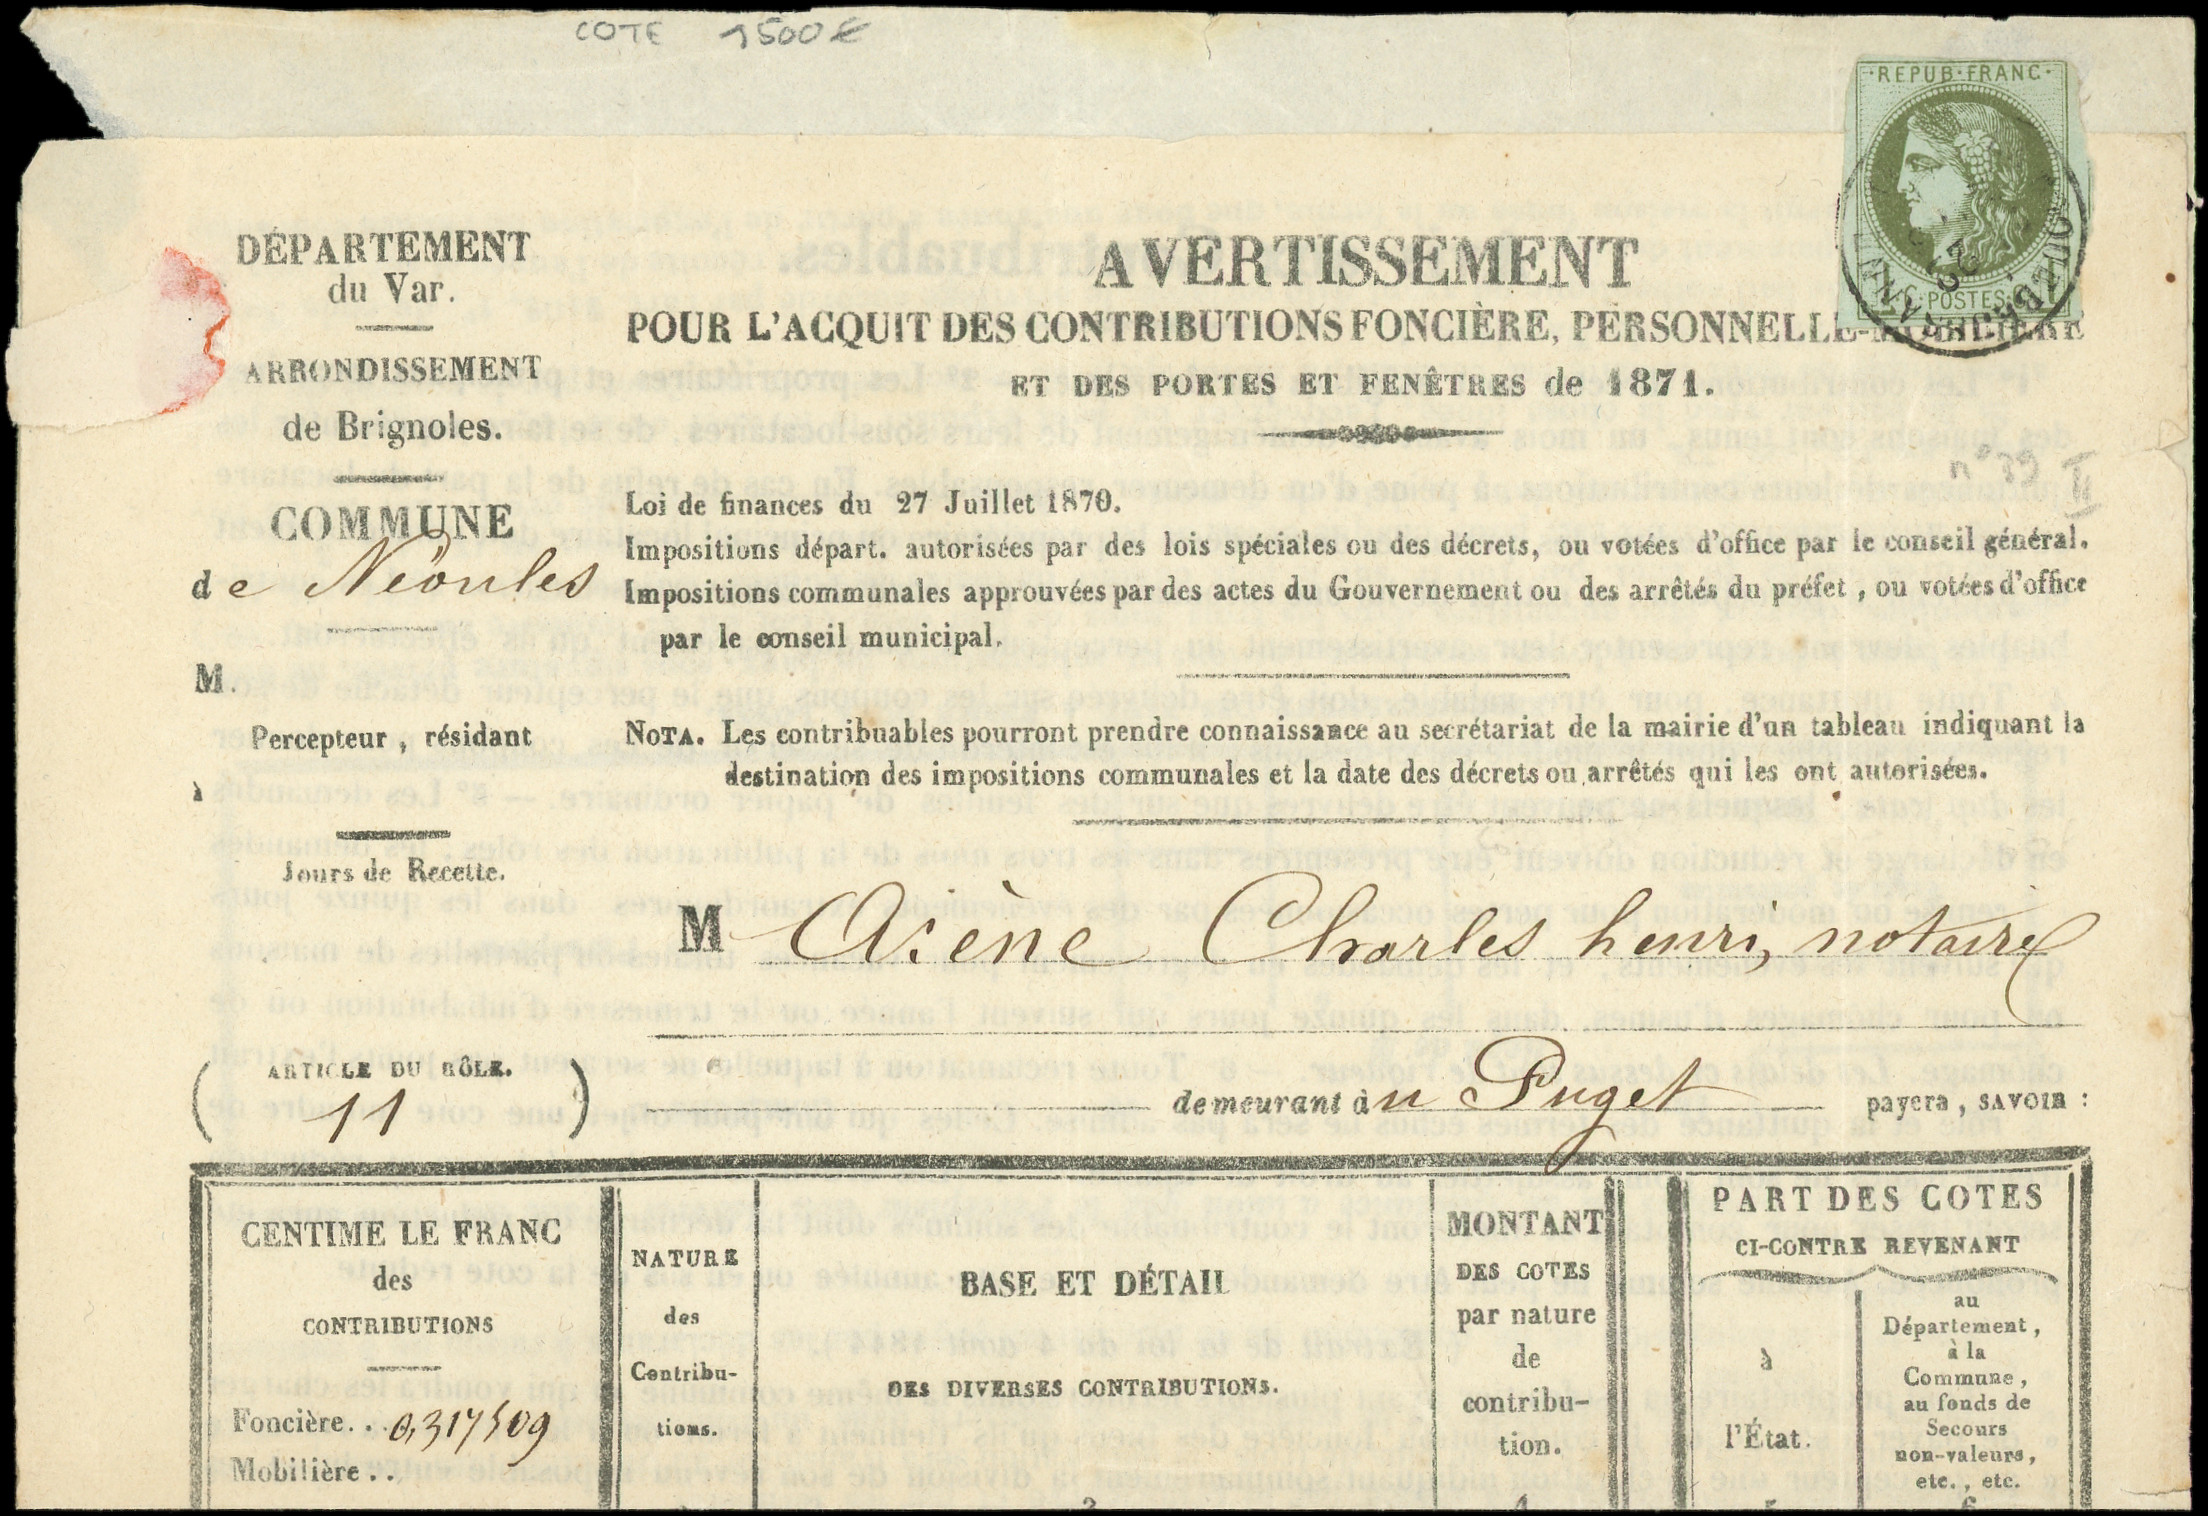 COTE 1500€
REPUB·FRANC·
1 C·POSTES·1
DÉPARTEMENT
du Var.
ARRONDISSEMENT
de Brignoles.
COMMUNE
de Néoules
M.
Percepteur, résidant
à
Jours de Recette.
AVERTISSEMENT
POUR L'ACQUIT DES CONTRIBUTIONS FONCIÈRE, PERSONNELLE-MOBILIÈRE
ET DES PORTES ET FENÊTRES de 1871.
n°39 II
Loi de finances du 27 Juillet 1870.
Impositions départ. autorisées par des lois spéciales ou des décrets, ou votées d'office par le conseil général.
Impositions communales approuvées par des actes du Gouvernement ou des arrêtés du préfet, ou votées d'office
par le conseil municipal.
NOTA. Les contribuables pourront prendre connaissance au secrétariat de la mairie d'un tableau indiquant la
destination des impositions communales et la date des décrets ou arrêtés qui les ont autorisées.
M Arène Charles henri, notaire
(ARTICLE DU RÔLE.
11)
demeurant à u Puget payera, SAVOIR :
CENTIME LE FRANC
des
CONTRIBUTIONS
Foncière.. 0,317509
Mobilière..
NATURE
des
Contribu-
tions.
BASE ET DÉTAIL
DES DIVERSES CONTRIBUTIONS.
MONTANT
DES COTES
par nature
de
contribu-
tion.
PART DES COTES
CI-CONTRE REVENANT
à
l'État.
au
Département,
à la
Commune,
au fonds de
Secours
non-valeurs,
etc., etc.